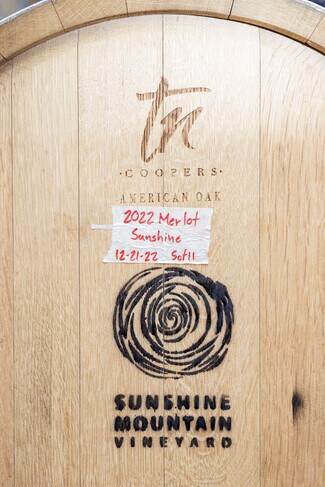 tn
·COOPERS·
AMERICAN OAK
2022 Merlot
Sunshine
12-21-22 5of11
SUNSHINE
MOUNTAIN
VINEYARD